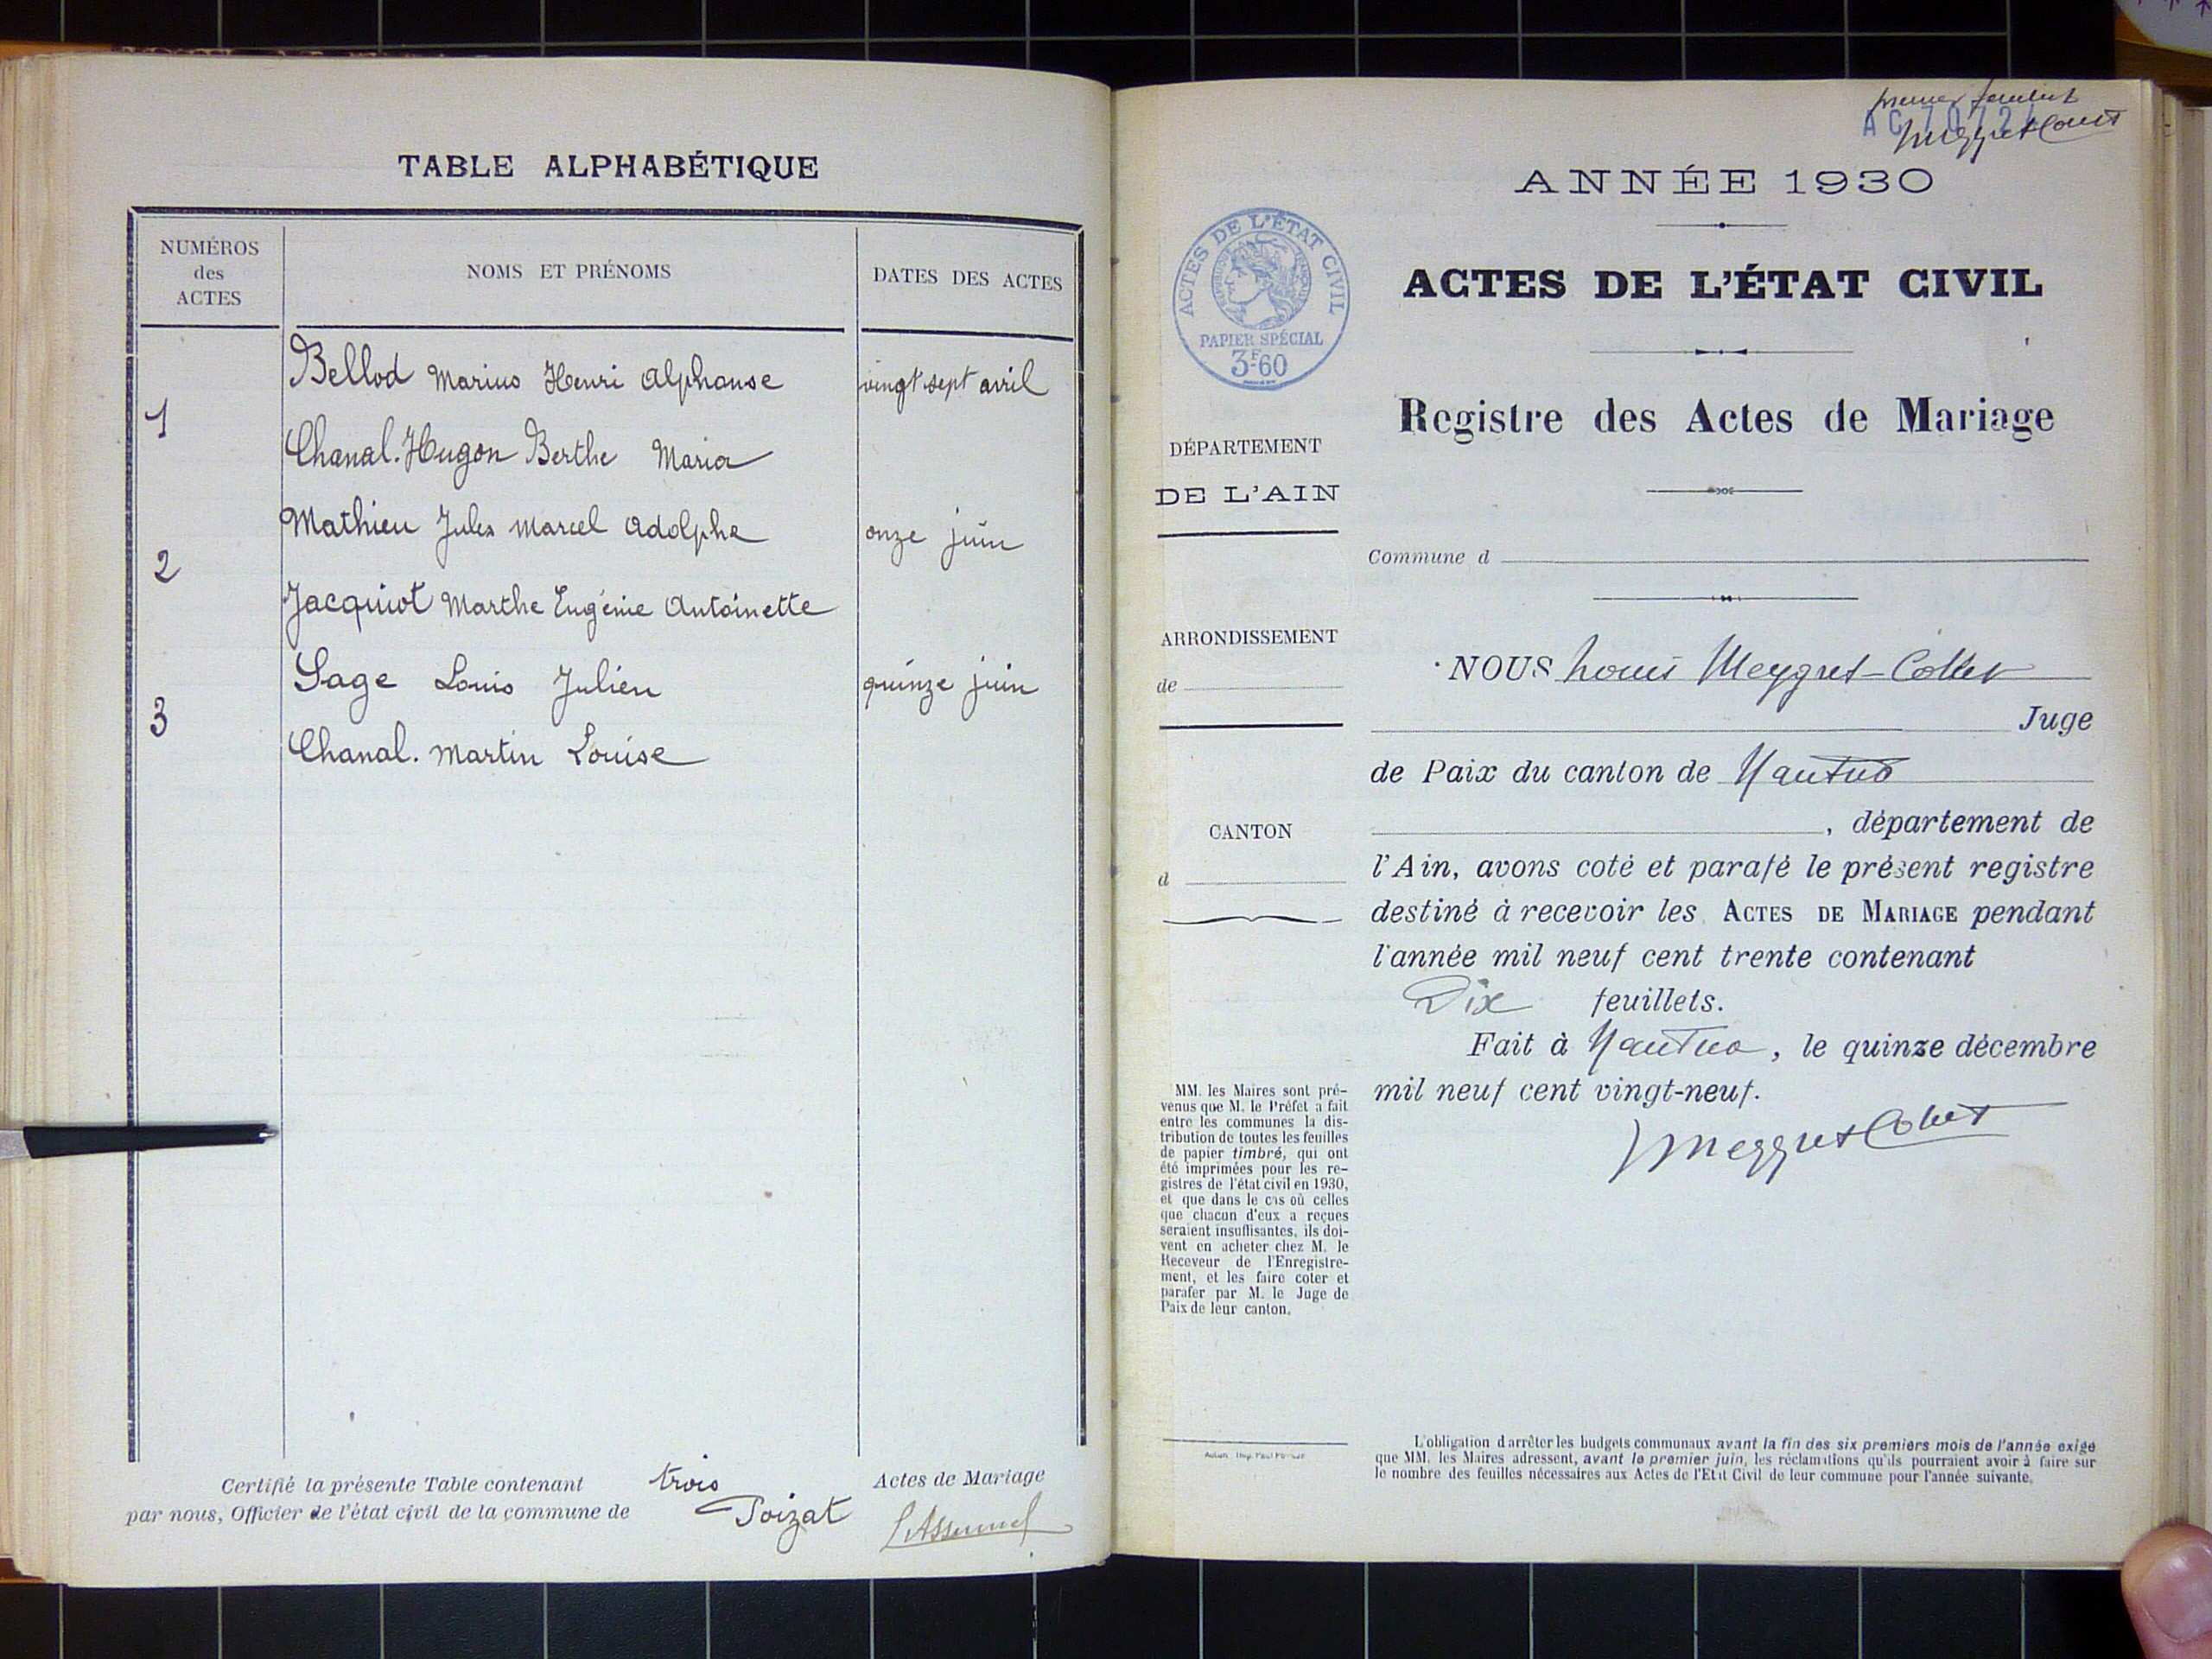 TABLE ALPHABÉTIQUE
NUMÉROS
des
ACTES
NOMS ET PRÉNOMS
DATES DES ACTES
Bellod Marius Henri Alphonse
vingt sept avril
1
Chanal-Hugon Berthe Maria
Mathieu Jules Marcel Adolphe
onze juin
2
Jacquiot Marthe Eugénie Antoinette
Sage Louis Julien
quinze juin
3
Chanal. Martin Louise
Certifié la présente Table contenant trois Actes de Mariage
par nous, Officier de l'état civil de la commune de Poizat
premier feuillet
Meygret Collet
ANNÉE 1930
ACTES DE L'ÉTAT CIVIL
PAPIER SPÉCIAL
3F60
ACTES DE L'ÉTAT CIVIL
Registre des Actes de Mariage
DÉPARTEMENT
DE L'AIN
Commune d
ARRONDISSEMENT
de
CANTON
d
NOUS Louis Meygret-Collet
Juge
de Paix du canton de Nantua
, département de
l'Ain, avons coté et parafé le présent registre
destiné à recevoir les ACTES DE MARIAGE pendant
l'année mil neuf cent trente contenant
Dix feuillets.
Fait à Nantua, le quinze décembre
mil neuf cent vingt-neuf.
Meygret Collet
MM. les Maires sont pré-
venus que M. le Préfet a fait
entre les communes la dis-
tribution de toutes les feuilles
de papier timbré, qui ont
été imprimées pour les re-
gistres de l'état civil en 1930,
et que dans le cas où celles
que chacun d'eux a reçues
seraient insuffisantes, ils doi-
vent en acheter chez M. le
Receveur de l'Enregistre-
ment, et les faire coter et
parafer par M. le Juge de
Paix de leur canton.
L'obligation d'arrêter les budgets communaux avant la fin des six premiers mois de l'année exige
que MM. les Maires adressent, avant le premier juin, les réclamations qu'ils pourraient avoir à faire sur
le nombre des feuilles nécessaires aux Actes de l'Etat Civil de leur commune pour l'année suivante.